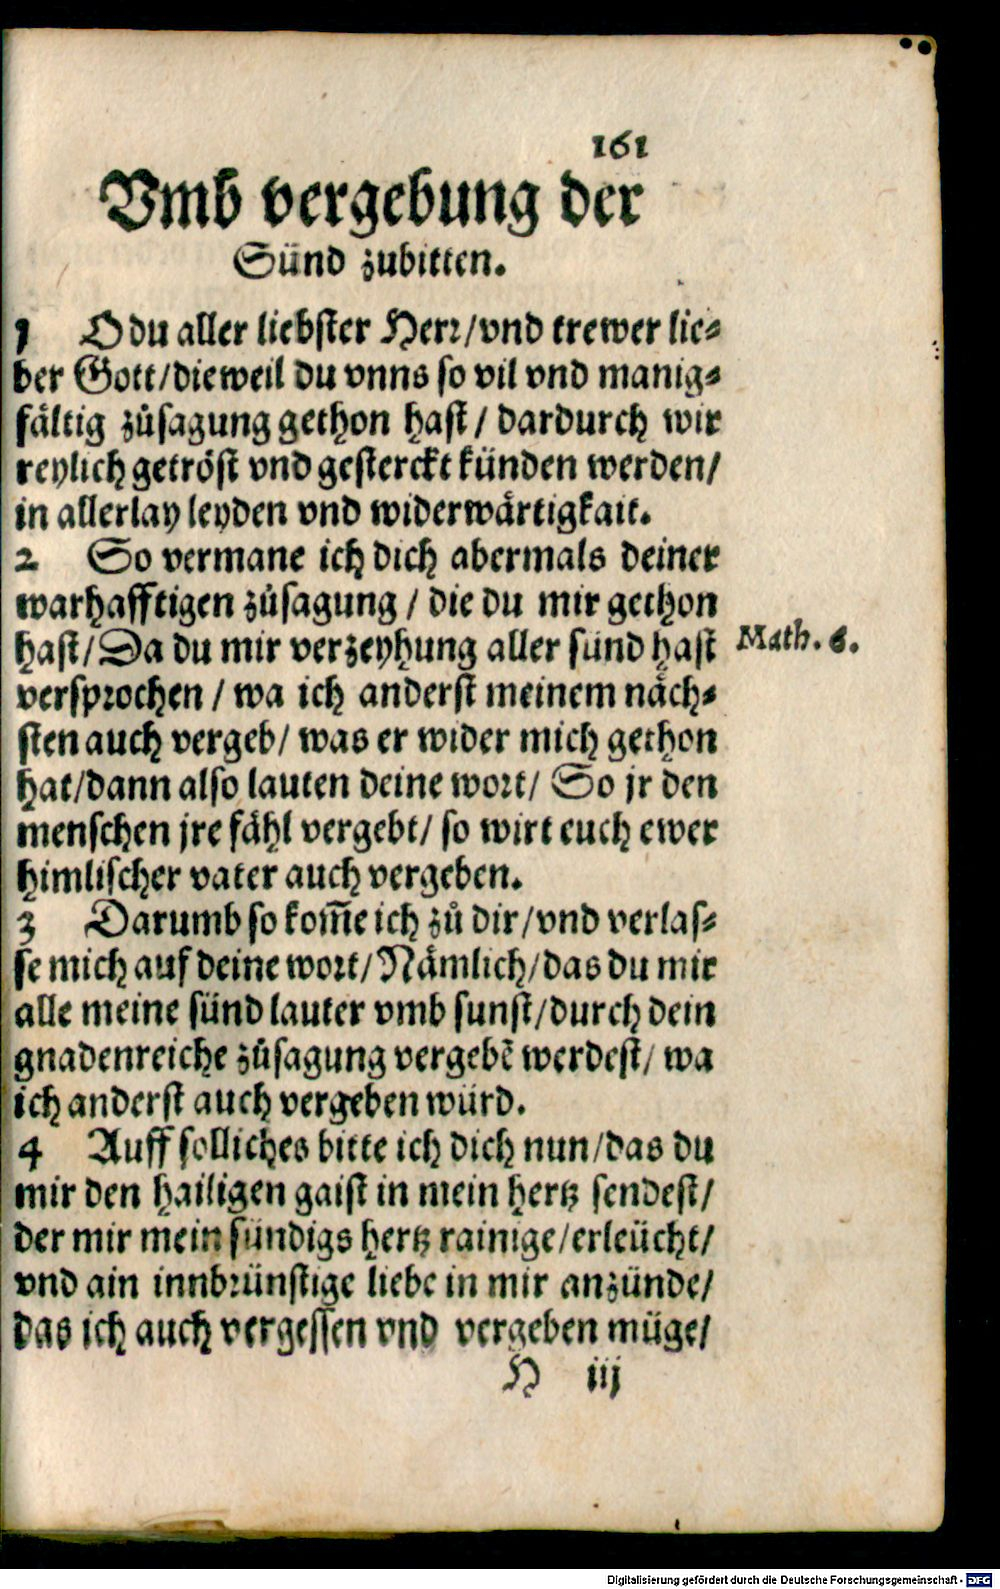 161
Vmb vergebung der
Sünd zubitten.
1 O du aller liebster Herr/vnd trewer lie-
ber Gott/dieweil du vnns so vil vnd manig-
fältig zůsagung gethon hast/ dardurch wir
reylich getröst vnd gesterckt künden werden/
in allerlay leyden vnd widerwärtigkait.
2 So vermane ich dich abermals deiner
warhafftigen zůsagung / die du mir gethon
hast/Da du mir verzeyhung aller sünd hast
Math. 6.
versprochen / wa ich anderst meinem näch-
sten auch vergeb/ was er wider mich gethon
hat/dann also lauten deine wort/ So jr den
menschen jre fähl vergebt/ so wirt euch ewer
himlischer vater auch vergeben.
3 Darumb so kom̃e ich zů dir/vnd verlas-
se mich auf deine wort/Nämlich/das du mir
alle meine sünd lauter vmb sunst/durch dein
gnadenreiche zůsagung vergebẽ werdest/ wa
ich anderst auch vergeben würd.
4 Auff solliches bitte ich dich nun/das du
mir den hailigen gaist in mein hertz sendest/
der mir mein sündigs hertz rainige/erleücht/
vnd ain innbrünstige liebe in mir anzünde/
das ich auch vergessen vnd vergeben müge/
H iij
Digitalisierung gefördert durch die Deutsche Forschungsgemeinschaft - DFG